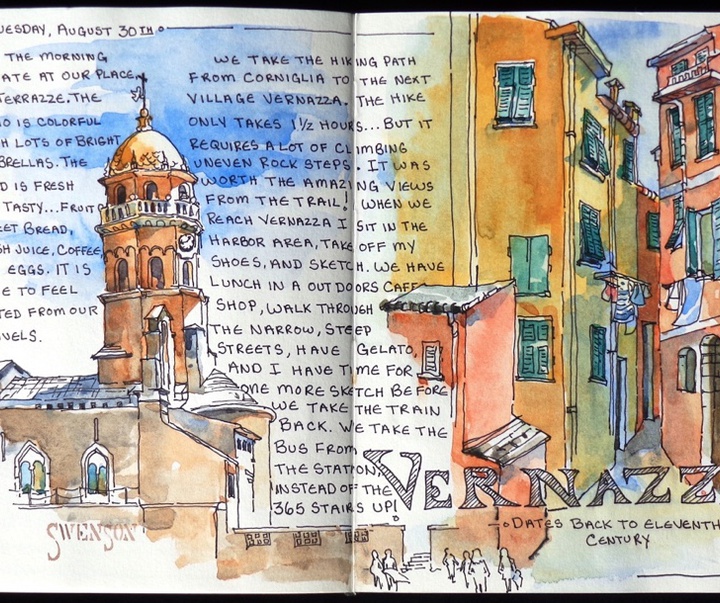 UESDAY, AUGUST 30TH
THE MORNING
ATE AT OUR PLACE,
TERRAZZE. THE
IO IS COLORFUL
H LOTS OF BRIGHT
BRELLAS. THE
D IS FRESH
TASTY...FRUIT,
EET BREAD,
SH JUICE, COFFEE,
EGGS. IT IS
E TO FEEL
TED FROM OUR
VELS.
SWENSON
WE TAKE THE HIKING PATH
FROM CORNIGLIA TO THE NEXT
VILLAGE VERNAZZA. THE HIKE
ONLY TAKES 1½ HOURS...BUT IT
REQUIRES A LOT OF CLIMBING
UNEVEN ROCK STEPS. IT WAS
WORTH THE AMAZING VIEWS
FROM THE TRAIL! WHEN WE
REACH VERNAZZA I SIT IN THE
HARBOR AREA, TAKE OFF MY
SHOES, AND SKETCH. WE HAVE
LUNCH IN A OUTDOORS CAFE
SHOP, WALK THROUGH
THE NARROW, STEEP
STREETS, HAVE GELATO,
AND I HAVE TIME FOR
ONE MORE SKETCH BEFORE
WE TAKE THE TRAIN
BACK. WE TAKE THE
BUS FROM
THE STATION
INSTEAD OF THE
365 STAIRS UP!
VERNAZZ
DATES BACK TO ELEVENTH
CENTURY